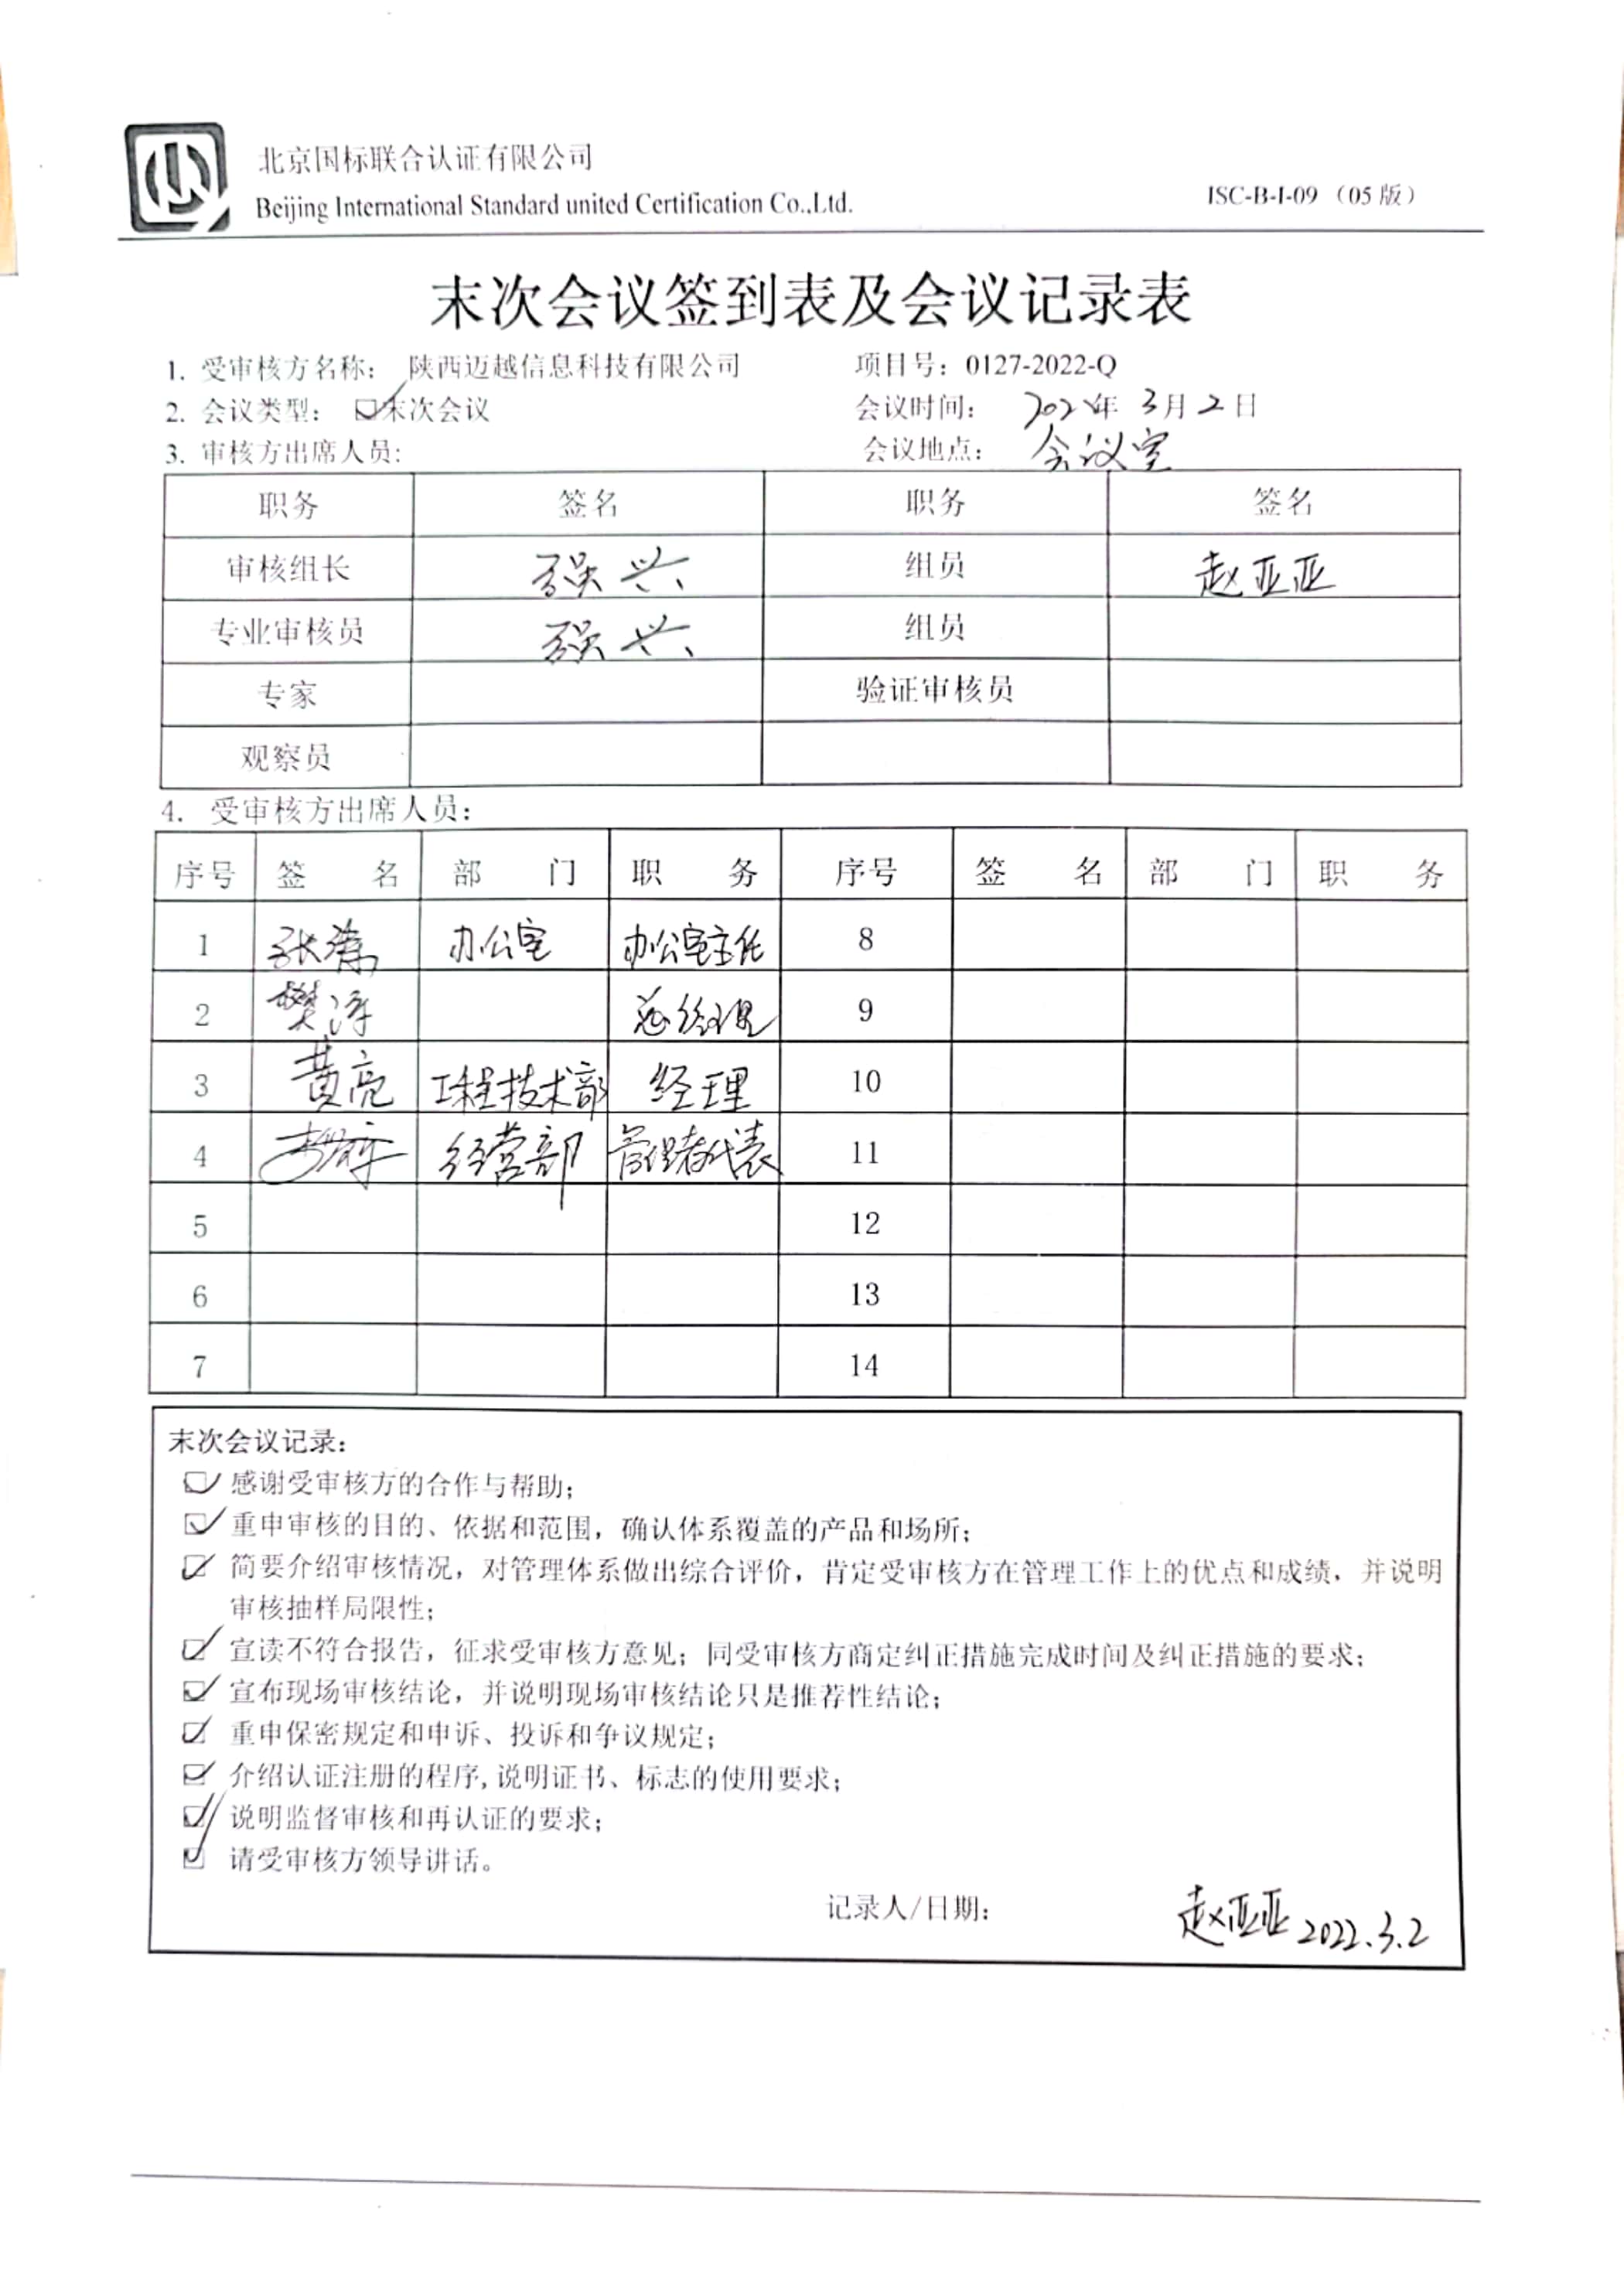 北京国标联合认证有限公司
Beijing International Standard united Certification Co.,Ltd.
ISC-B-I-09 （05 版）
末次会议签到表及会议记录表
1. 受审核方名称： 陕西迈越信息科技有限公司 项目号：0127-2022-Q
2. 会议类型： ☑末次会议 会议时间： 2022年 3月 2日
3. 审核方出席人员: 会议地点： 会议室
职务 签名 职务 签名
审核组长 强兴 组员 赵亚亚
专业审核员 强兴 组员
专家 验证审核员
观察员
4. 受审核方出席人员：
序号 签 名 部 门 职 务 序号 签 名 部 门 职 务
1 办公室 办公室主任 8
2 总经理 9
3 黄亮 工程技术部 经理 10
4 经营部 管理者代表 11
5 12
6 13
7 14
末次会议记录：
☑ 感谢受审核方的合作与帮助；
☑ 重申审核的目的、依据和范围，确认体系覆盖的产品和场所；
☑ 简要介绍审核情况，对管理体系做出综合评价，肯定受审核方在管理工作上的优点和成绩，并说明
审核抽样局限性；
☑ 宣读不符合报告，征求受审核方意见；同受审核方商定纠正措施完成时间及纠正措施的要求；
☑ 宣布现场审核结论，并说明现场审核结论只是推荐性结论；
☑ 重申保密规定和申诉、投诉和争议规定；
☑ 介绍认证注册的程序,说明证书、标志的使用要求；
☑ 说明监督审核和再认证的要求；
☑ 请受审核方领导讲话。
记录人/日期： 赵亚亚 2022.3.2